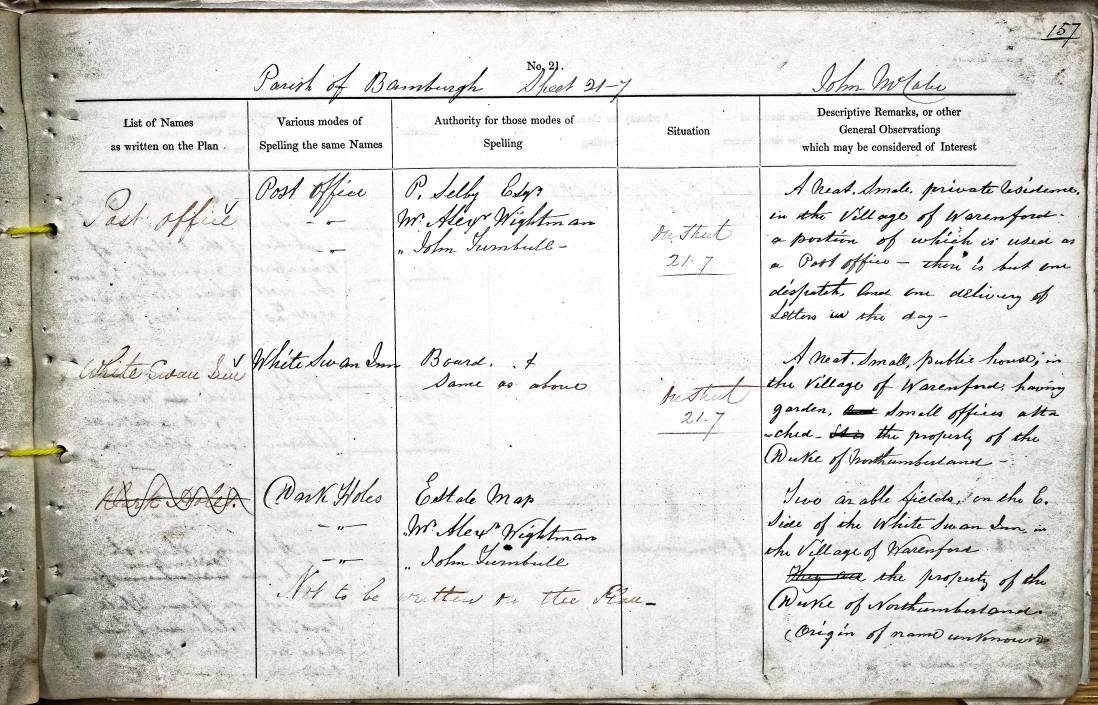 157
No. 21.
Parish of Bamburgh Sheet 21-7 John McCabe
List of Names
as written on the Plan
Various modes of
Spelling the same Names
Authority for those modes of
Spelling
Situation
Descriptive Remarks, or other
General Observations
which may be considered of Interest
Post office
Post office
- "
- "
P. Selby Esqr
Mr. Alexr Wightman
" John Turnbull -
On Sheet
21.7
A neat, small, private residence,
in the Village of Warenford -
a portion of which is used as
a Post office - there is but one
dispatch, and one delivery of
letters in the day -
White Swan Inn
White Swan Inn
Board. &
Same as above
On Sheet
21.7
A neat, small, public house, in
the Village of Warenford, having
garden, and small offices atta
-ched - It is the property of the
Duke of Northumberland -
Dark Holes.
Dark Holes
- "
- "
Estate Map
Mr. Alexr Wightman
" John Turnbull
Not to be written on the Plan -
Two arable fields, on the E.
side of the White Swan Inn, in
the Village of Warenford
They are the property of the
Duke of Northumberland.
(Origin of name unknown)